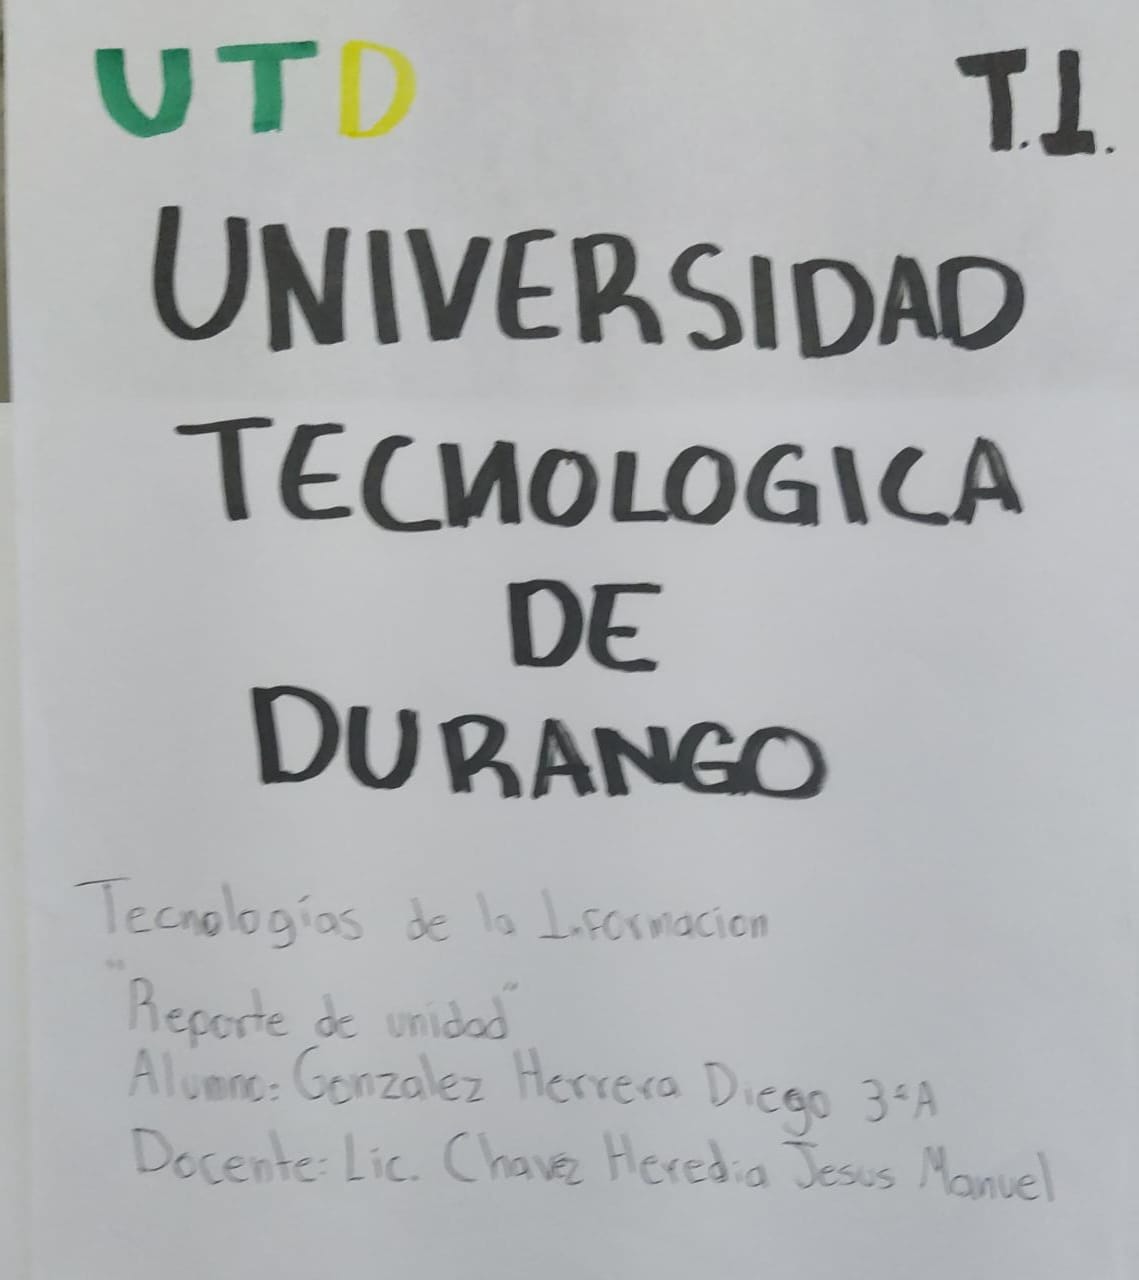 UTD T.I.
UNIVERSIDAD
TECNOLOGICA
DE
DURANGO
Tecnologías de la Informacion
"Reporte de unidad"
Alumno: Gonzalez Herrera Diego 3ºA
Docente: Lic. Chavez Heredia Jesus Manuel